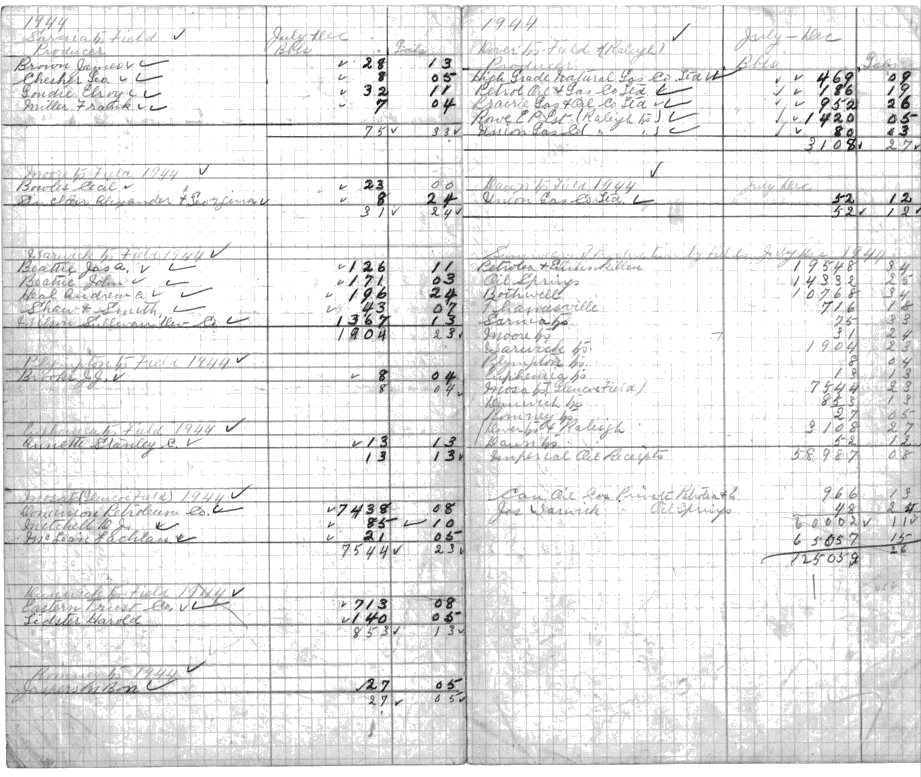 1944
Sarnia tp Field
July - Dec
Producer Bbls Gals
Brown James 28 13
Chesher Geo. 8 05
Goudie Elroy 32 11
Miller Frank 7 04
75 33
Moore tp Field 1944
Bowles Cecil 23 00
Sinclair Alexander & Georgena 8 24
31 24
Warwick tp Field 1944
Beattie Jas A. 126 11
Beattie John 171 03
Heal Andrew A 196 24
Shaw & Smith 43 07
1367 13
1904 23
Plympton tp Field 1944
Brooks 8 04
8 04
Euphemia tp Field 1944
Annett Stanley C 13 13
13 13
Mosa tp (Glencoe Field) 1944
Dominion Petroleum Co. 7438 08
Mitchell 85 10
McLean Lachlan 21 05
7544 23
Dunwich tp Field 1944
Eastern Co. 713 08
Lidster Harold 140 05
853 13
Romney tp 1944
Jasperson Bon 27 05
27 05
1944
Dover tp Field & (Raleigh)
July - Dec
Producer Bbls Gals
High Grade Natural Gas Co Ltd 469 09
Petrol Oil & Gas Co Ltd 186 19
Prairie Gas & Oil Co Ltd 952 26
Rowe E P Est (Raleigh tp) 1420 05
Union Gas Co ( " " ) 80 03
3108 27
Dawn tp Field 1944 July Dec
Union Gas Co Ltd. 52 12
52 12
Summary Production by Fields July Dec 1944
Petrolea & Enniskillen 19548 34
Oil Springs 14332 25
Bothwell 10768 14
Thamesville 716 18
Sarnia tp 75 33
Moore tp 31 24
Warwick tp 1904 23
Plympton tp 8 04
Euphemia tp 13 13
Mosa tp (Glencoe Field) 7544 23
Dunwich tp 853 13
Romney tp 27 05
Dover tp & Raleigh 3108 27
Dawn tp 52 12
Imperial Oil Receipts 58987 08
Can Oil Cos Private Petrolea 966 13
Jos Warwick Oil Springs 48 24
60002 11
65057 15
125059 26